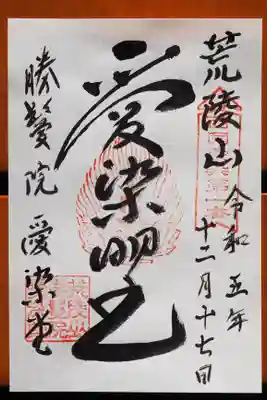 荒陵山
令和五年
十二月十七日
愛染明王
勝鬘院 愛染堂